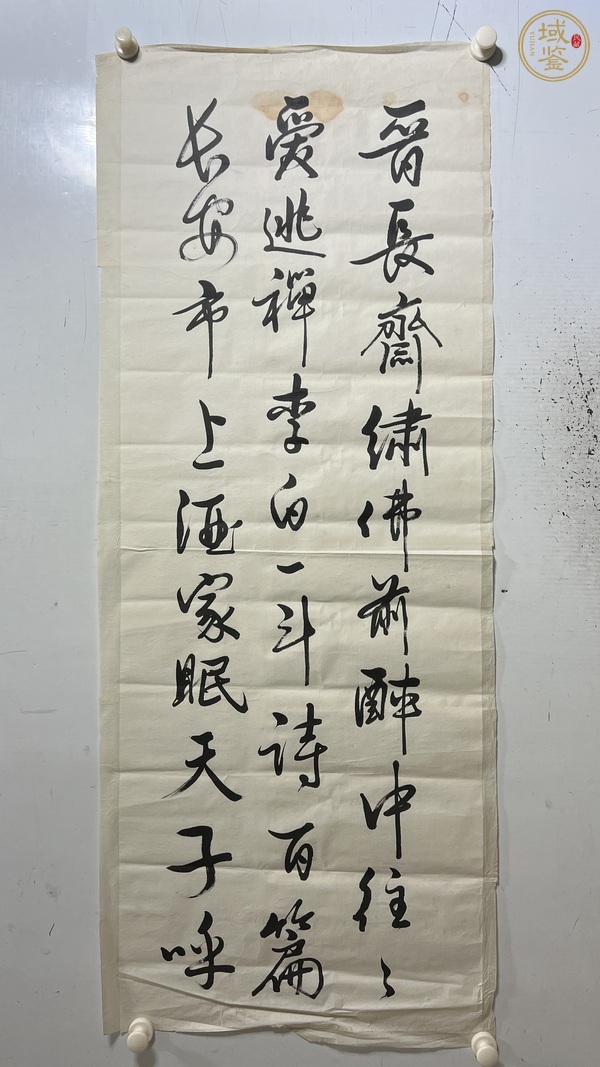 晋長齋繍佛前醉中往々
愛逃禪李白一斗詩百篇
长安市上酒家眠天子呼
域鉴
YUJIAN